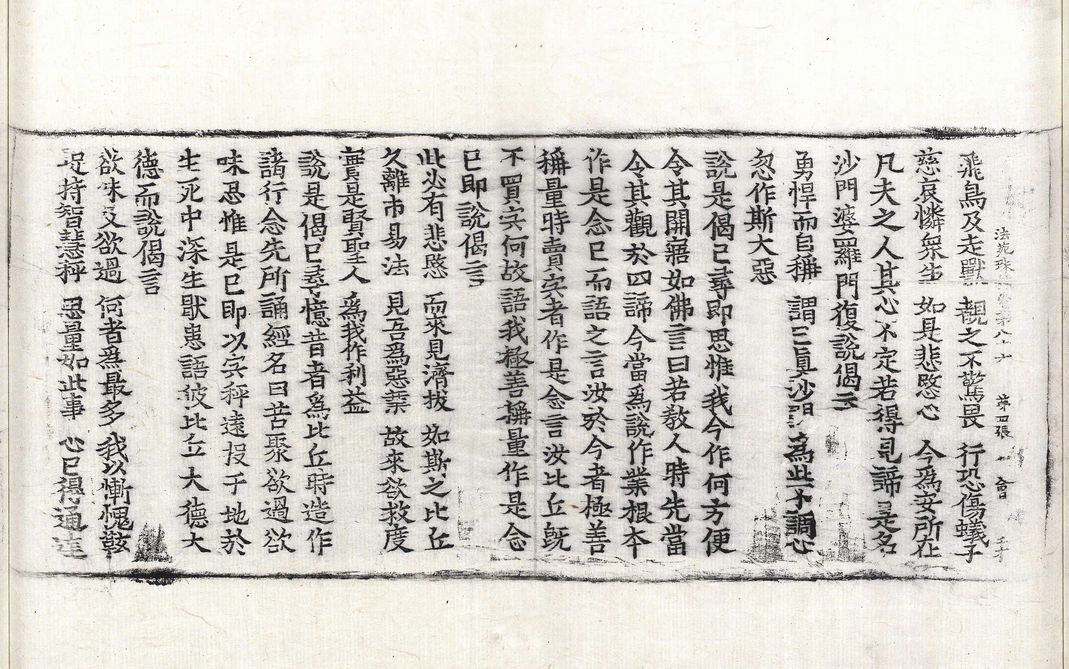 法苑珠 第四張 會
飛鳥及走獸 覩之不驚畏 行恐傷蟻子
慈哀憐衆生 如是悲愍心 今爲安所在
凡夫之人其心不定若得見諦是名
沙門婆羅門復說偈言
勇悍而自稱 謂己真沙門 爲此不調心
忽作斯大惡
說是偈已尋即思惟我今作何方便
令其開寤如佛言曰若教人時先當
令其觀於四諦今當爲說作業根本
作是念已而語之言汝於今者極善
稱量時賣宍者作是念言汝比丘既
不買宍何故語我極善稱量作是念
已即說偈言
此必有悲愍 而來見濟拔 如斯之比丘
久離市易法 見吾爲惡業 故來欲救度
實是賢聖人 爲我作利益
說是偈已尋憶昔者爲比丘時造作
諸行念先所誦經名曰苦聚欲過欲
味思惟是已即以宍秤遠投于地於
生死中深生猒患語彼比丘大德大
德而說偈言
欲味及欲過 何者爲最多 我以慚愧
捉持智慧秤 思量如此事 心已得通達